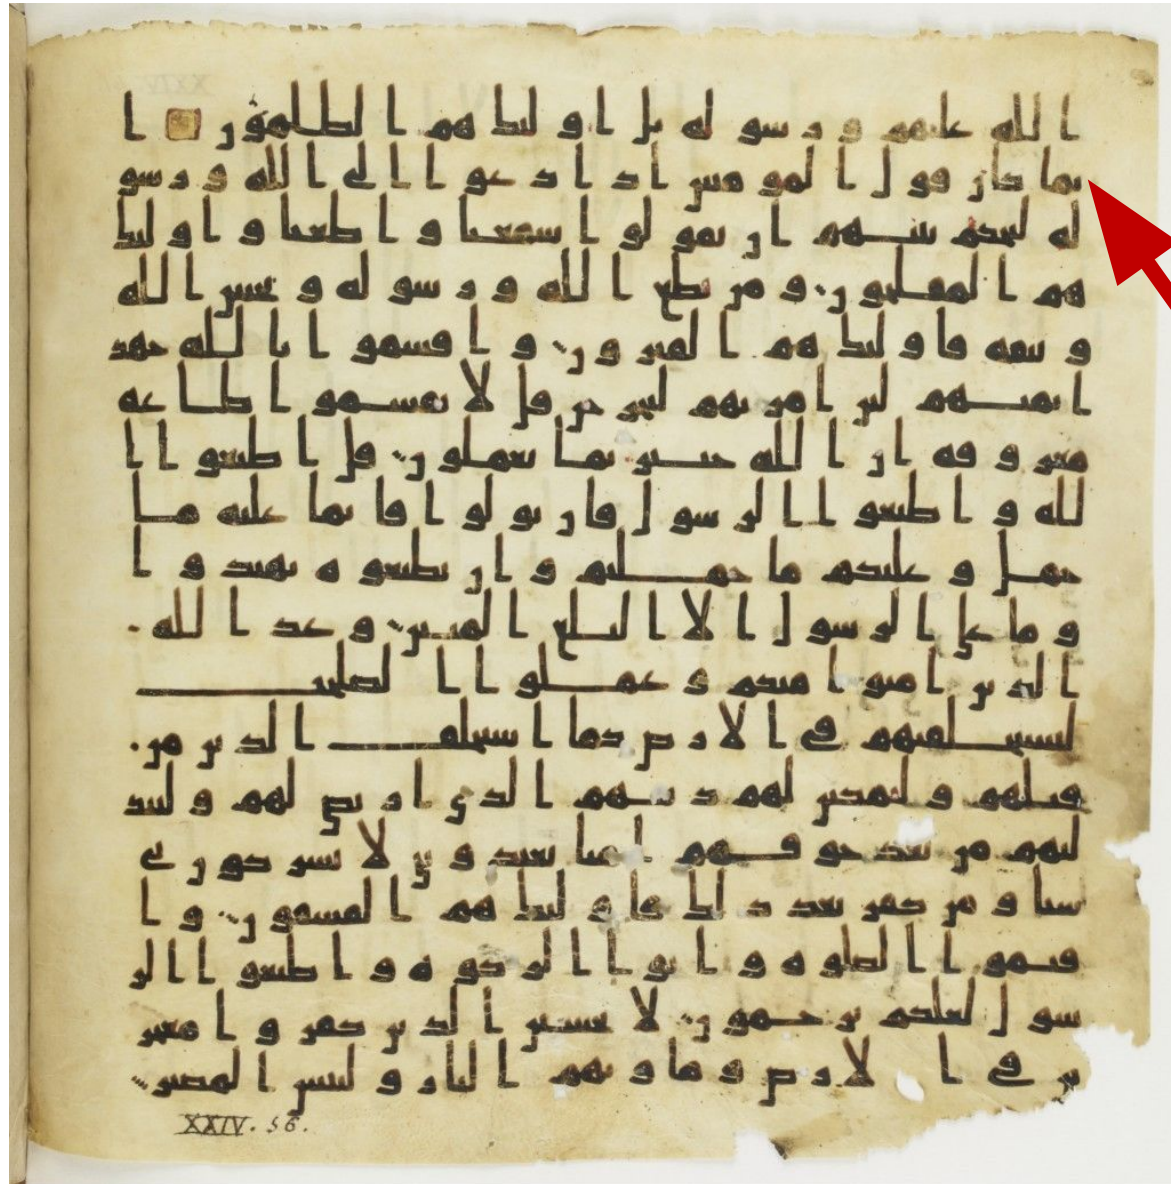 الله عليهم ورسوله بل اولئك هم الظلمون ا
نما كان قول المومنين اذا دعوا الى الله ورسو
له ليحكم بينهم ان يقولوا سمعنا واطعنا واولئك
هم المفلحون ومن يطع الله ورسوله ويخش الله
ويتقه فاولئك هم الفيزون واقسموا بالله جهد
ايمنهم لين امرتهم ليخرجن قل لا تقسموا طاعة
معروفة ان الله خبير بما تعملون قل اطيعوا ا
لله واطيعوا الرسول فان تولوا فانما عليه ما
حمل وعليكم ما حملتم وان تطيعوه تهتدوا
وما على الرسول الا البلغ المبين وعد الله
الذين امنوا منكم وعملوا الصلحت
ليستخلفنهم في الارض كما استخلف الذين من
قبلهم وليمكنن لهم دينهم الذي ارتضى لهم وليبد
لنهم من بعد خوفهم امنا يعبدونني لا يشركون بي
شيا ومن كفر بعد ذلك فاولئك هم الفسقون وا
قيموا الصلوة واتوا الزكوة واطيعوا الر
سول لعلكم ترحمون لا تحسبن الذين كفروا معجز
ين في الارض وماويهم النار ولبيس المصير
XXIV. 56.